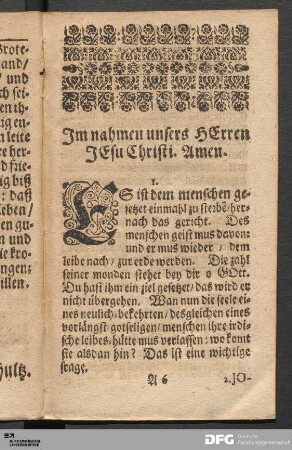 Brote-
and/
und
ch sei-
en th-
ig en-
n leite
e her-
d frie-
ig biß
: daß
leben/
en gu-
n und
ie kro-
ngen:
illen.
hultz.
Im nahmen unsers HErren
JEsu Christi. Amen.
1.
ES ist dem menschen ge-
setzet einmahl zu sterbē/her-
nach das gericht. Des
menschen geist mus davon:
und er mus wieder / dem
leibe nach/zur erde werden. Die zahl
seiner monden stehet bey dir o GOtt.
Du hast ihm ein ziel gesetzet/das wird er
nicht übergehen. Wan nun die seele ei-
nes neulich-bekehrten/desgleichen eines
vorlängst gotseligen/menschen ihre irdi-
sche leibes-hütte mus verlassen: wo komt
sie alsdan hin? Das ist eine wichtige
frage.
A 6
2. JO-
DFG
Deutsche
Forschungsgemeinschaft